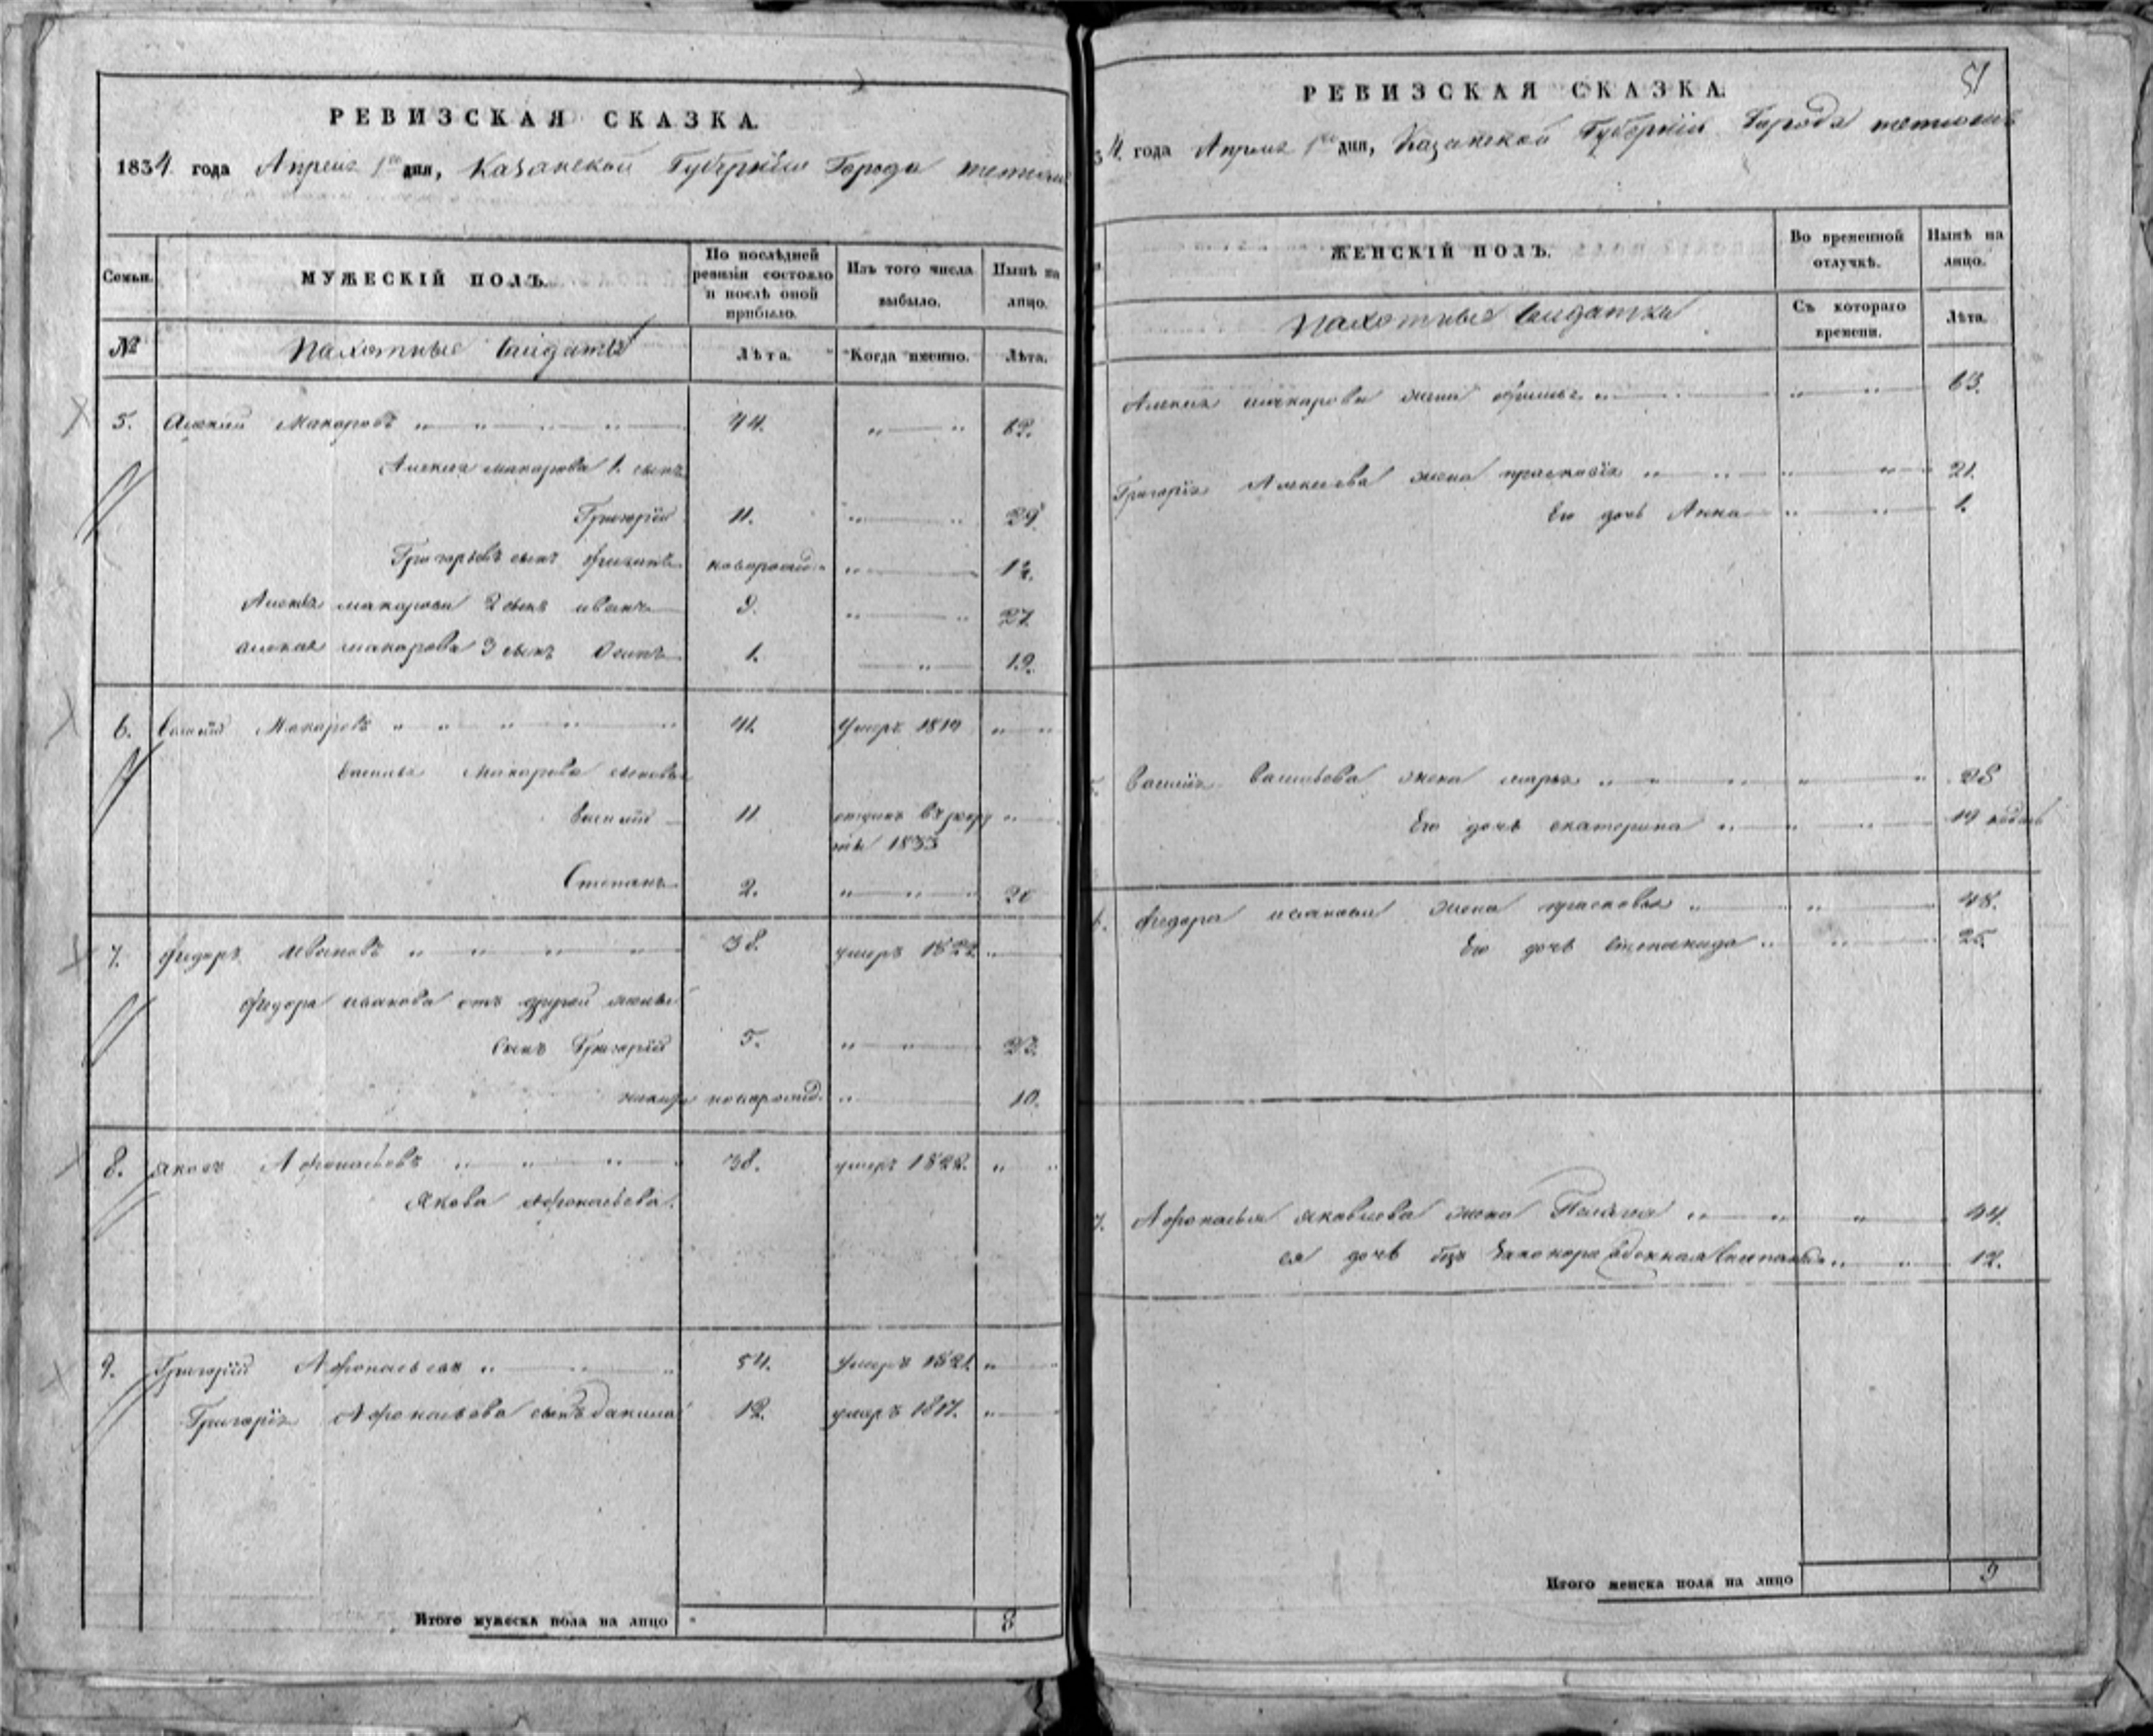 РЕВИЗСКАЯ СКАЗКА.
1834 года Апреля 1го дня, Казанской Губернiи Города тетюшъ
Семьи. МУЖЕСКIЙ ПОЛЪ. По послѣдней ревизiи состояло и послѣ оной прибыло. Изъ того числа выбыло. Нынѣ на лицо.
№ Пахотные салдаты Лѣта. Когда именно. Лѣта.
5. Алексѣй Макаровъ 44. 62.
Алексея макарова 1. сынъ
Григорiй 11. 29
Григорьевъ сынъ новорожд. 1½.
Алексея макарова 2 сынъ иванъ 9. 27.
алексея макарова 3 сынъ Осипъ 1. 19.
6. Василiй Макаровъ 41. Умеръ 1819
Василья Макарова сыновья
Василiй 11 отданъ въ рекруты 1833
Степанъ 2. 20
7. Федоръ Ивановъ 38. умеръ 1822
Федора иванова отъ другой жены
Сынъ Григорiй 5. 23.
новорожд. 10.
8. Яковъ Афонасьевъ 38. умеръ 1822.
Якова Афонасьева.
9. Григорiй Афонасьевъ 54. Умеръ 1821.
Григорiя Афонасьева сынъ данила 12. умеръ 1817.
Итого мужеска пола на лицо 8
51
РЕВИЗСКАЯ СКАЗКА.
34. года Апреля 1го дня, Казанской Губернiи Города тетюшъ
ЖЕНСКIЙ ПОЛЪ. Во временной отлучкѣ. Нынѣ на лицо.
Пахотные салдатки Съ котораго времени. Лѣта.
Алексея макарова жена 63.
Григорiя Алексеева жена прасковiя 21.
Его дочь Анна 1.
Василiя Васильева жена марья 28
Его дочь екатерина 19 недель
6. Федора иванова жена прасковья 48.
Его дочь Степанида 25.
7. Афонасья яковлева жена Пелагея 44.
ея дочь 12.
Итого женска пола на лицо 9